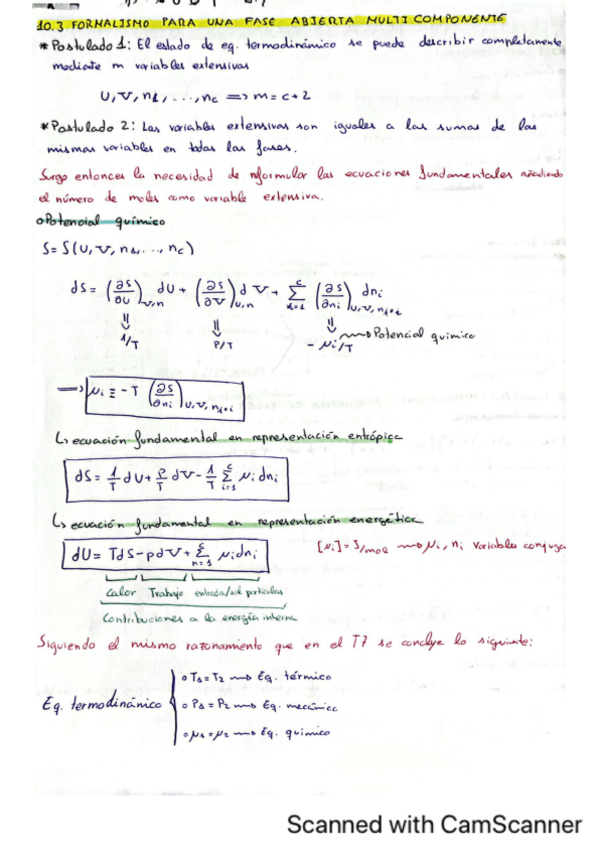 10.3 FORMALISMO PARA UNA FASE ABIERTA MULTICOMPONENTE
* Postulado 1: El estado de eq. termodinámico se puede describir completamente
mediate m variables extensivas
U, V, n1, ..., nc => m = c+2
* Postulado 2: Las variables extensivas son iguales a las sumas de las
mismas variables en todas las fases.
Surge entonces la necesidad de reformular las ecuaciones fundamentales añadiendo
el número de moles como variable extensiva.
o Potencial químico
S = S(U, V, n1, ..., nc)
dS = (∂S/∂U)V,n dU + (∂S/∂V)U,n dV + Σ (∂S/∂ni)U,V,nj≠i dni
1/T P/T - μi/T ⟿ Potencial químico
→ μi ≡ -T (∂S/∂ni)U,V,nj≠i
↳ ecuación fundamental en representación entrópica
dS = 1/T dU + P/T dV - 1/T Σ μi dni
↳ ecuación fundamental en representación energética
dU = TdS - pdV + Σ μi dni [μi] = J/mol ⟿ μi, ni variables conjuga
Calor Trabajo entrada/sal partículas
Contribuciones a la energía interna
Siguiendo el mismo razonamiento que en el T7 se concluye lo siguiente:
o T1 = T2 ⟿ Eq. térmico
Eq. termodinánico o P1 = P2 ⟿ Eq. mecánico
o μ1 = μ2 ⟿ Eq. químico
Scanned with CamScanner